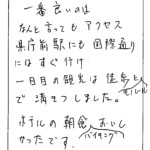 一番良いのは
なんと言っても アクセス
県庁前駅にも 国際通り
にはすぐ付け
一日目の観光は徒歩と
モノレール
で済ませました。
ホテルの朝食 おいし
バイキング
かったです。